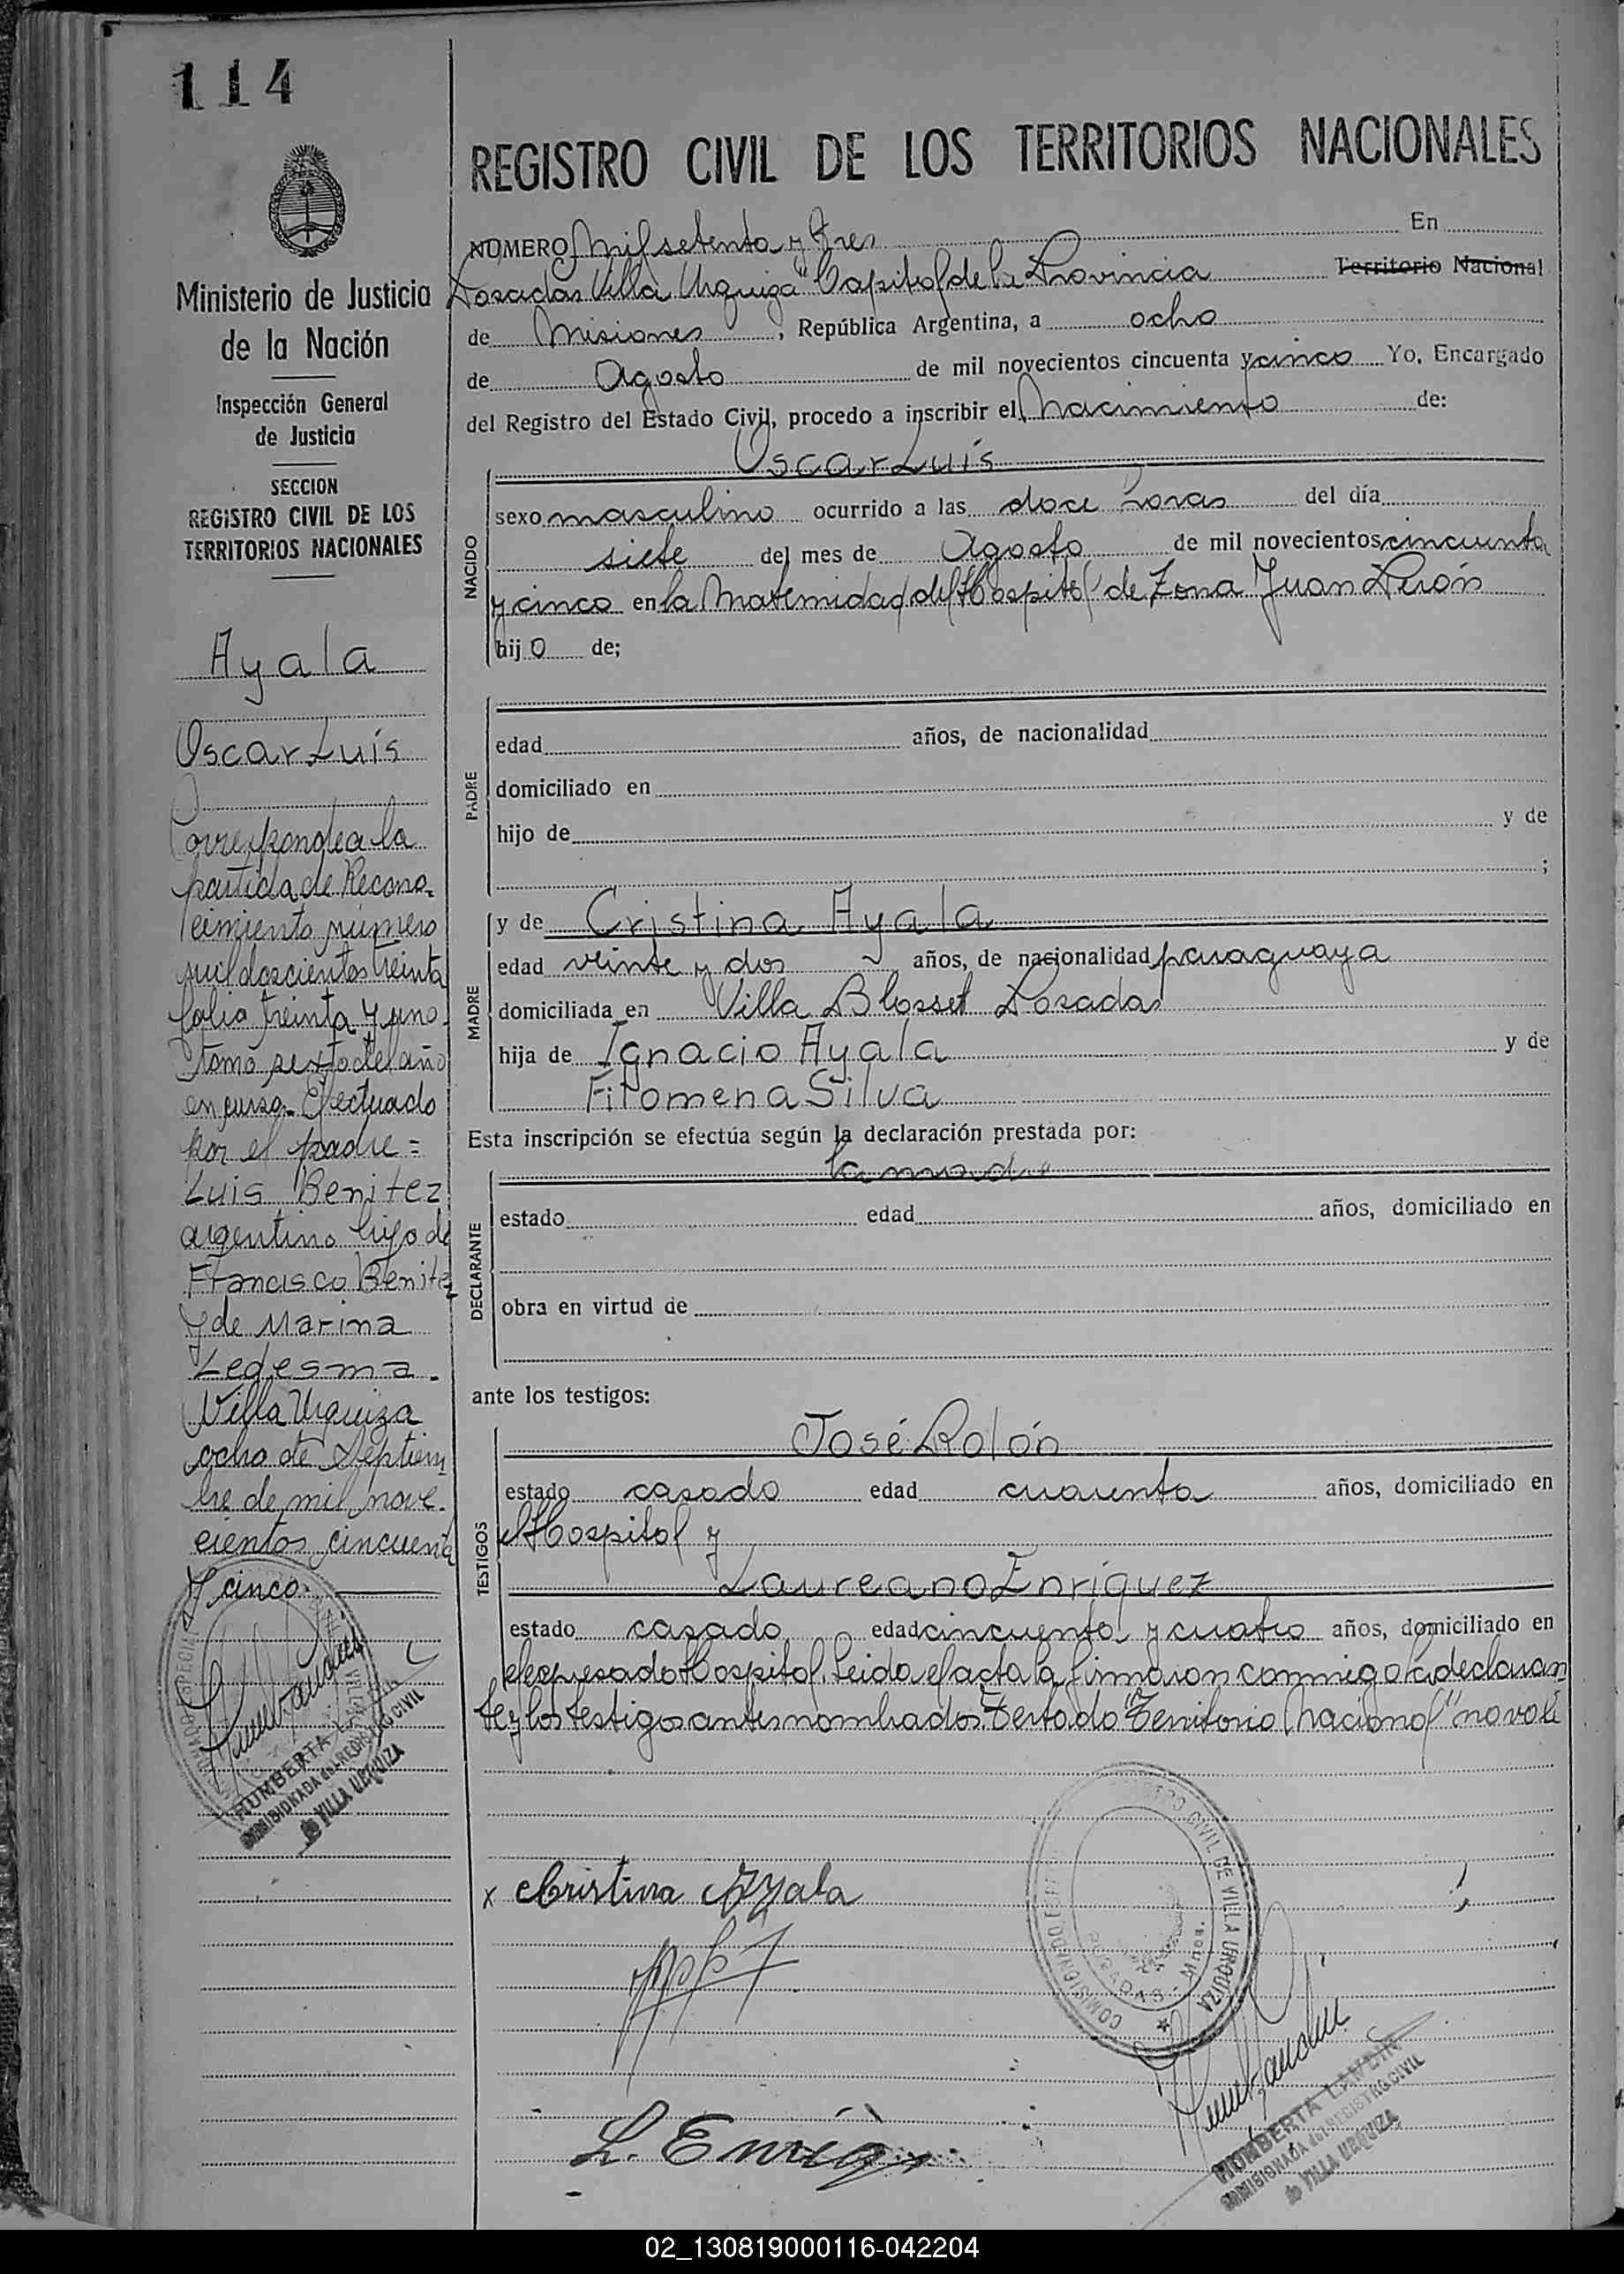 114
Ministerio de Justicia
de la Nación
Inspección General
de Justicia
SECCION
REGISTRO CIVIL DE LOS
TERRITORIOS NACIONALES
Ayala
Oscar Luis
Corresponde a la
partida de Recono-
cimiento número
mil doscientos treinta
folio treinta y uno
tomo sexto del año
en curso. Efectuado
por el padre =
Luis Benitez
argentino hijo de
Francisco Benitez
y de Marina
Ledesma.
Villa Urquiza
ocho de Septiem
bre de mil nove-
cientos cincuenta
y cinco.
HUMBERTA
COMISIONADA del REGISTRO CIVIL
de VILLA URQUIZA
REGISTRO CIVIL DE LOS TERRITORIOS NACIONALES
NUMERO mil setenta y tres En
Posadas Villa Urquiza" Capital de la Provincia Territorio Nacional
de Misiones, República Argentina, a ocho
de Agosto de mil novecientos cincuenta y cinco Yo, Encargado
del Registro del Estado Civil, procedo a inscribir el nacimiento de:
Oscar Luis
NACIDO
sexo masculino ocurrido a las doce horas del día
siete del mes de Agosto de mil novecientos cincuenta
y cinco en la Maternidad del Hospital de Zona Juan Perón
hijo de;
PADRE
edad años, de nacionalidad
domiciliado en
hijo de y de
;
MADRE
y de Cristina Ayala
edad veinte y dos años, de nacionalidad paraguaya
domiciliada en Villa Blosset Posadas
hija de Ignacio Ayala y de
Filomena Silva
Esta inscripción se efectúa según la declaración prestada por:
la madre
DECLARANTE
estado edad años, domiciliado en
obra en virtud de
ante los testigos:
José Rolón
TESTIGOS
estado casado edad cuarenta años, domiciliado en
el Hospital y
Laureano Enriquez
estado casado edad cincuenta y cuatro años, domiciliado en
el expresado Hospital. Leida el acta la firmaron conmigo la declaran
te y los testigos antes nombrados. Testado "Territorio Nacional" no vale
x Cristina Ayala
COMISIONADO REGISTRO CIVIL DE VILLA URQUIZA
POSADAS - Mnes.
L. Enriq
HUMBERTA LANDIN
COMISIONADA del REGISTRO CIVIL
de VILLA URQUIZA
02_130819000116-042204